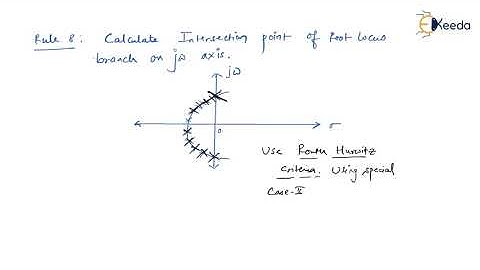 Rule 8: Calculate Intersecting point of Root locus
branch on jω axis.
Ekeeda
jω
0
σ
Use Routh Hurwitz
Criteria. Using special
Case-II